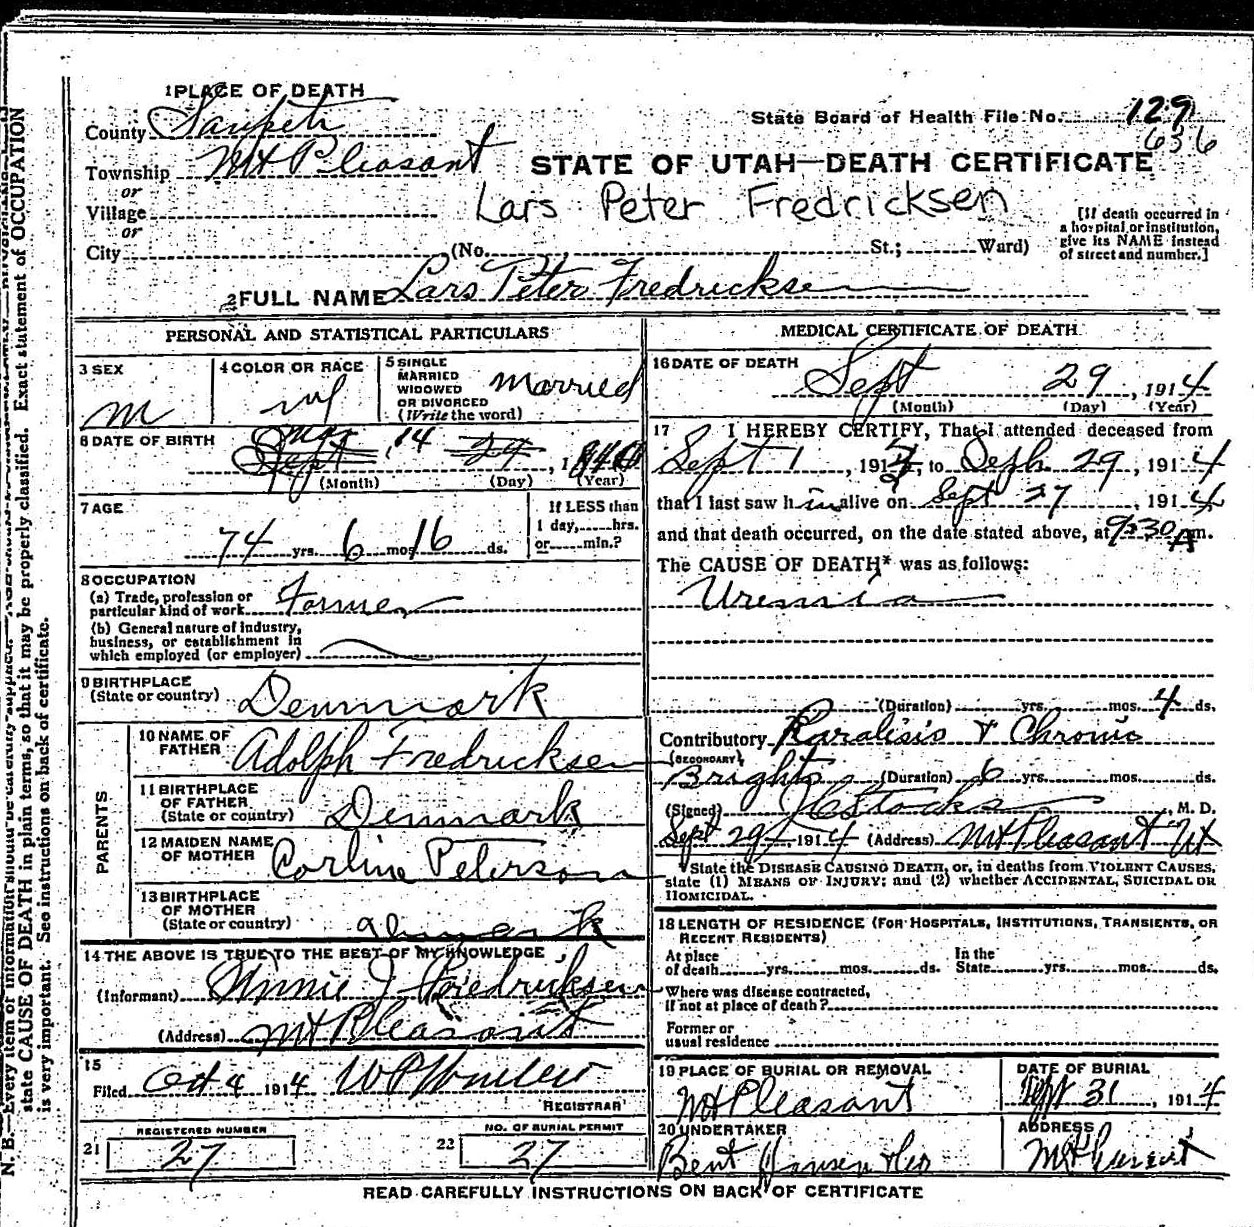 1 PLACE OF DEATH
County Sanpete
State Board of Health File No. 129
636
Township Mt Pleasant
STATE OF UTAH—DEATH CERTIFICATE
or
Village
Lars Peter Fredricksen
or
City (No. St.; Ward)
[If death occurred in
a hospital or institution,
give its NAME instead
of street and number.]
2 FULL NAME Lars Peter Fredricksen
PERSONAL AND STATISTICAL PARTICULARS
3 SEX
M
4 COLOR OR RACE
W
5 SINGLE
MARRIED
WIDOWED
OR DIVORCED
(Write the word)
Married
6 DATE OF BIRTH
Mar 14
Sept 29, 1840
(Month) (Day) (Year)
7 AGE
74 yrs. 6 mos. 16 ds.
If LESS than
1 day, hrs.
or min.?
8 OCCUPATION
(a) Trade, profession or
particular kind of work Farmer
(b) General nature of industry,
business, or establishment in
which employed (or employer)
9 BIRTHPLACE
(State or country) Denmark
PARENTS
10 NAME OF
FATHER Adolph Fredricksen
11 BIRTHPLACE
OF FATHER
(State or country) Denmark
12 MAIDEN NAME
OF MOTHER Corline Peterson
13 BIRTHPLACE
OF MOTHER
(State or country)
14 THE ABOVE IS TRUE TO THE BEST OF MY KNOWLEDGE
(Informant) Annie J Fredricksen
(Address) Mt Pleasant
15
Filed Oct 4 1914
REGISTRAR
21 REGISTERED NUMBER
27
22 NO. OF BURIAL PERMIT
27
MEDICAL CERTIFICATE OF DEATH
16 DATE OF DEATH
Sept 29, 1914
(Month) (Day) (Year)
17 I HEREBY CERTIFY, That I attended deceased from
Sept 1, 191 , to Sept 29, 1914
that I last saw him alive on Sept 27 1914
and that death occurred, on the date stated above, at 9:30 A m.
The CAUSE OF DEATH* was as follows:
Uremia
(Duration) yrs. mos. 4 ds.
Contributory Paralisis & Chronic
(SECONDARY)
Brights (Duration) 6 yrs. mos. ds.
(Signed) J C Stocks, M. D.
Sept 29, 1914 (Address) Mt Pleasant Ut
* State the DISEASE CAUSING DEATH, or, in deaths from VIOLENT CAUSES,
state (1) MEANS OF INJURY; and (2) whether ACCIDENTAL, SUICIDAL OR
HOMICIDAL.
18 LENGTH OF RESIDENCE (FOR HOSPITALS, INSTITUTIONS, TRANSIENTS, OR
RECENT RESIDENTS)
At place
of death yrs. mos. ds.
In the
State yrs. mos. ds.
Where was disease contracted,
if not at place of death?
Former or
usual residence
19 PLACE OF BURIAL OR REMOVAL
Mt Pleasant
DATE OF BURIAL
Sept 31, 1914
20 UNDERTAKER
Bent Hansen
ADDRESS
Mt Pleasant
READ CAREFULLY INSTRUCTIONS ON BACK OF CERTIFICATE
N. B.—Every item of information should be carefully supplied. Exact statement of OCCUPATION
state CAUSE OF DEATH in plain terms, so that it may be properly classified.
is very important. See instructions on back of certificate.